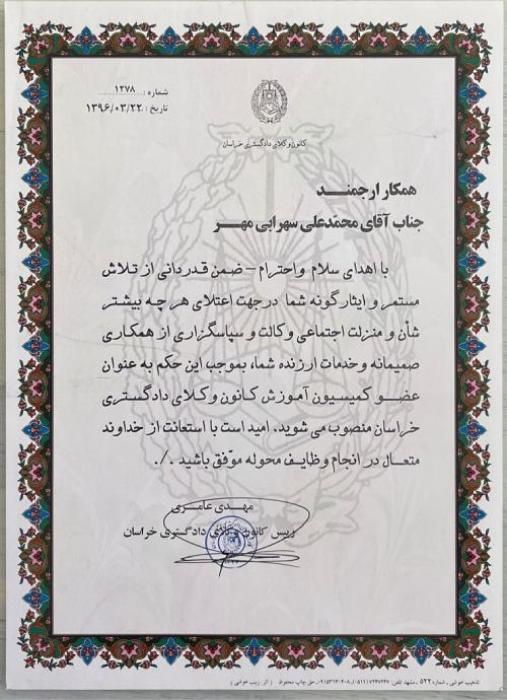 شماره : ۱۲۷۸
تاریخ : ۱۳۹۶/۰۳/۲۲
کانون وکلای دادگستری خراسان
همکار ارجمند
جناب آقای محمّدعلی سهرابی مهر
با اهدای سلام و احترام - ضمن قدردانی از تلاش
مستمر و ایثارگونه شما درجهت اعتلای هر چه بیشتر
شأن و منزلت اجتماعی وکالت و سپاسگزاری از همکاری
صمیمانه و خدمات ارزنده شما، بموجب این حکم به عنوان
عضو کمیسیون آموزش کانون وکلای دادگستری
خراسان منصوب می شوید. امید است با استعانت از خداوند
متعال در انجام وظایف محوله موّفق باشید ./.
مهدی عامری
رییس کانون وکلای دادگستری خراسان